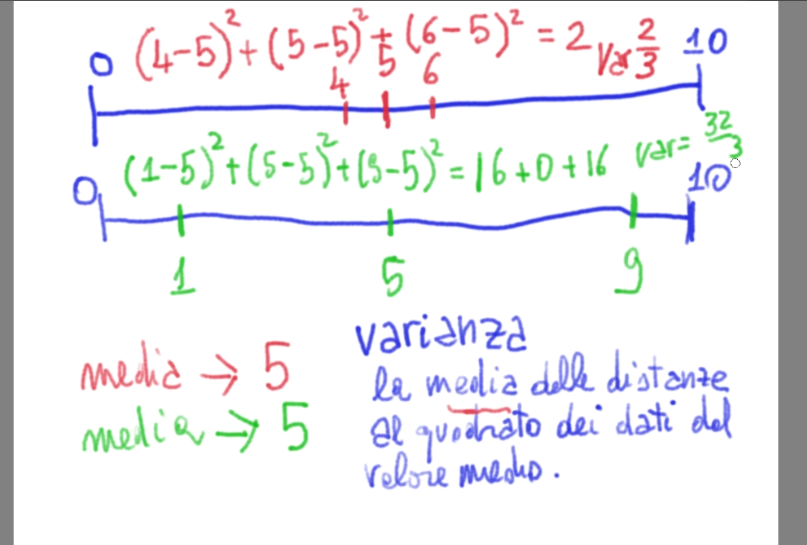 0 (4-5)²+(5-5)²+(6-5)² = 2 Var 2/3 10
4 5 6
0 (1-5)²+(5-5)²+(9-5)² = 16+0+16 var = 32/3 10
1 5 9
varianza
media → 5
la media delle distanze
media → 5
al quadrato dei dati dal
valore medio.